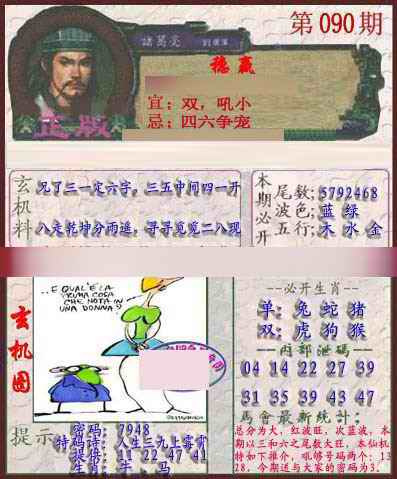 第090期
諸葛亮
稳赢
宜：双，吼小
忌：四六争宠
正版
玄机料
兄了三一定六字，三五中间四一开
八走乾坤分雨遥，寻寻觅觅二八现
本期必开
尾数：5792468
波色：蓝 绿
五行：木 水 金
玄机图
..E QUAL'E LA
PRIMA COSA
CHE NOTA IN
UNA DONNA?
--必开生肖--
单：兔 蛇 猪
双：虎 狗 猴
--内部泄码--
04 14 22 27 39
31 35 39 43 47
马會最新统计：
总分为大，红波旺，次蓝波，本
期以三和六之尾数大旺，本仙机
特如下推介，吼够号码两个：13
28，今期送与大家的密码为3。
提示
密码：7948
特码诗：人生三九上霄霄
提供：11 22 47 41
生肖：牛．马